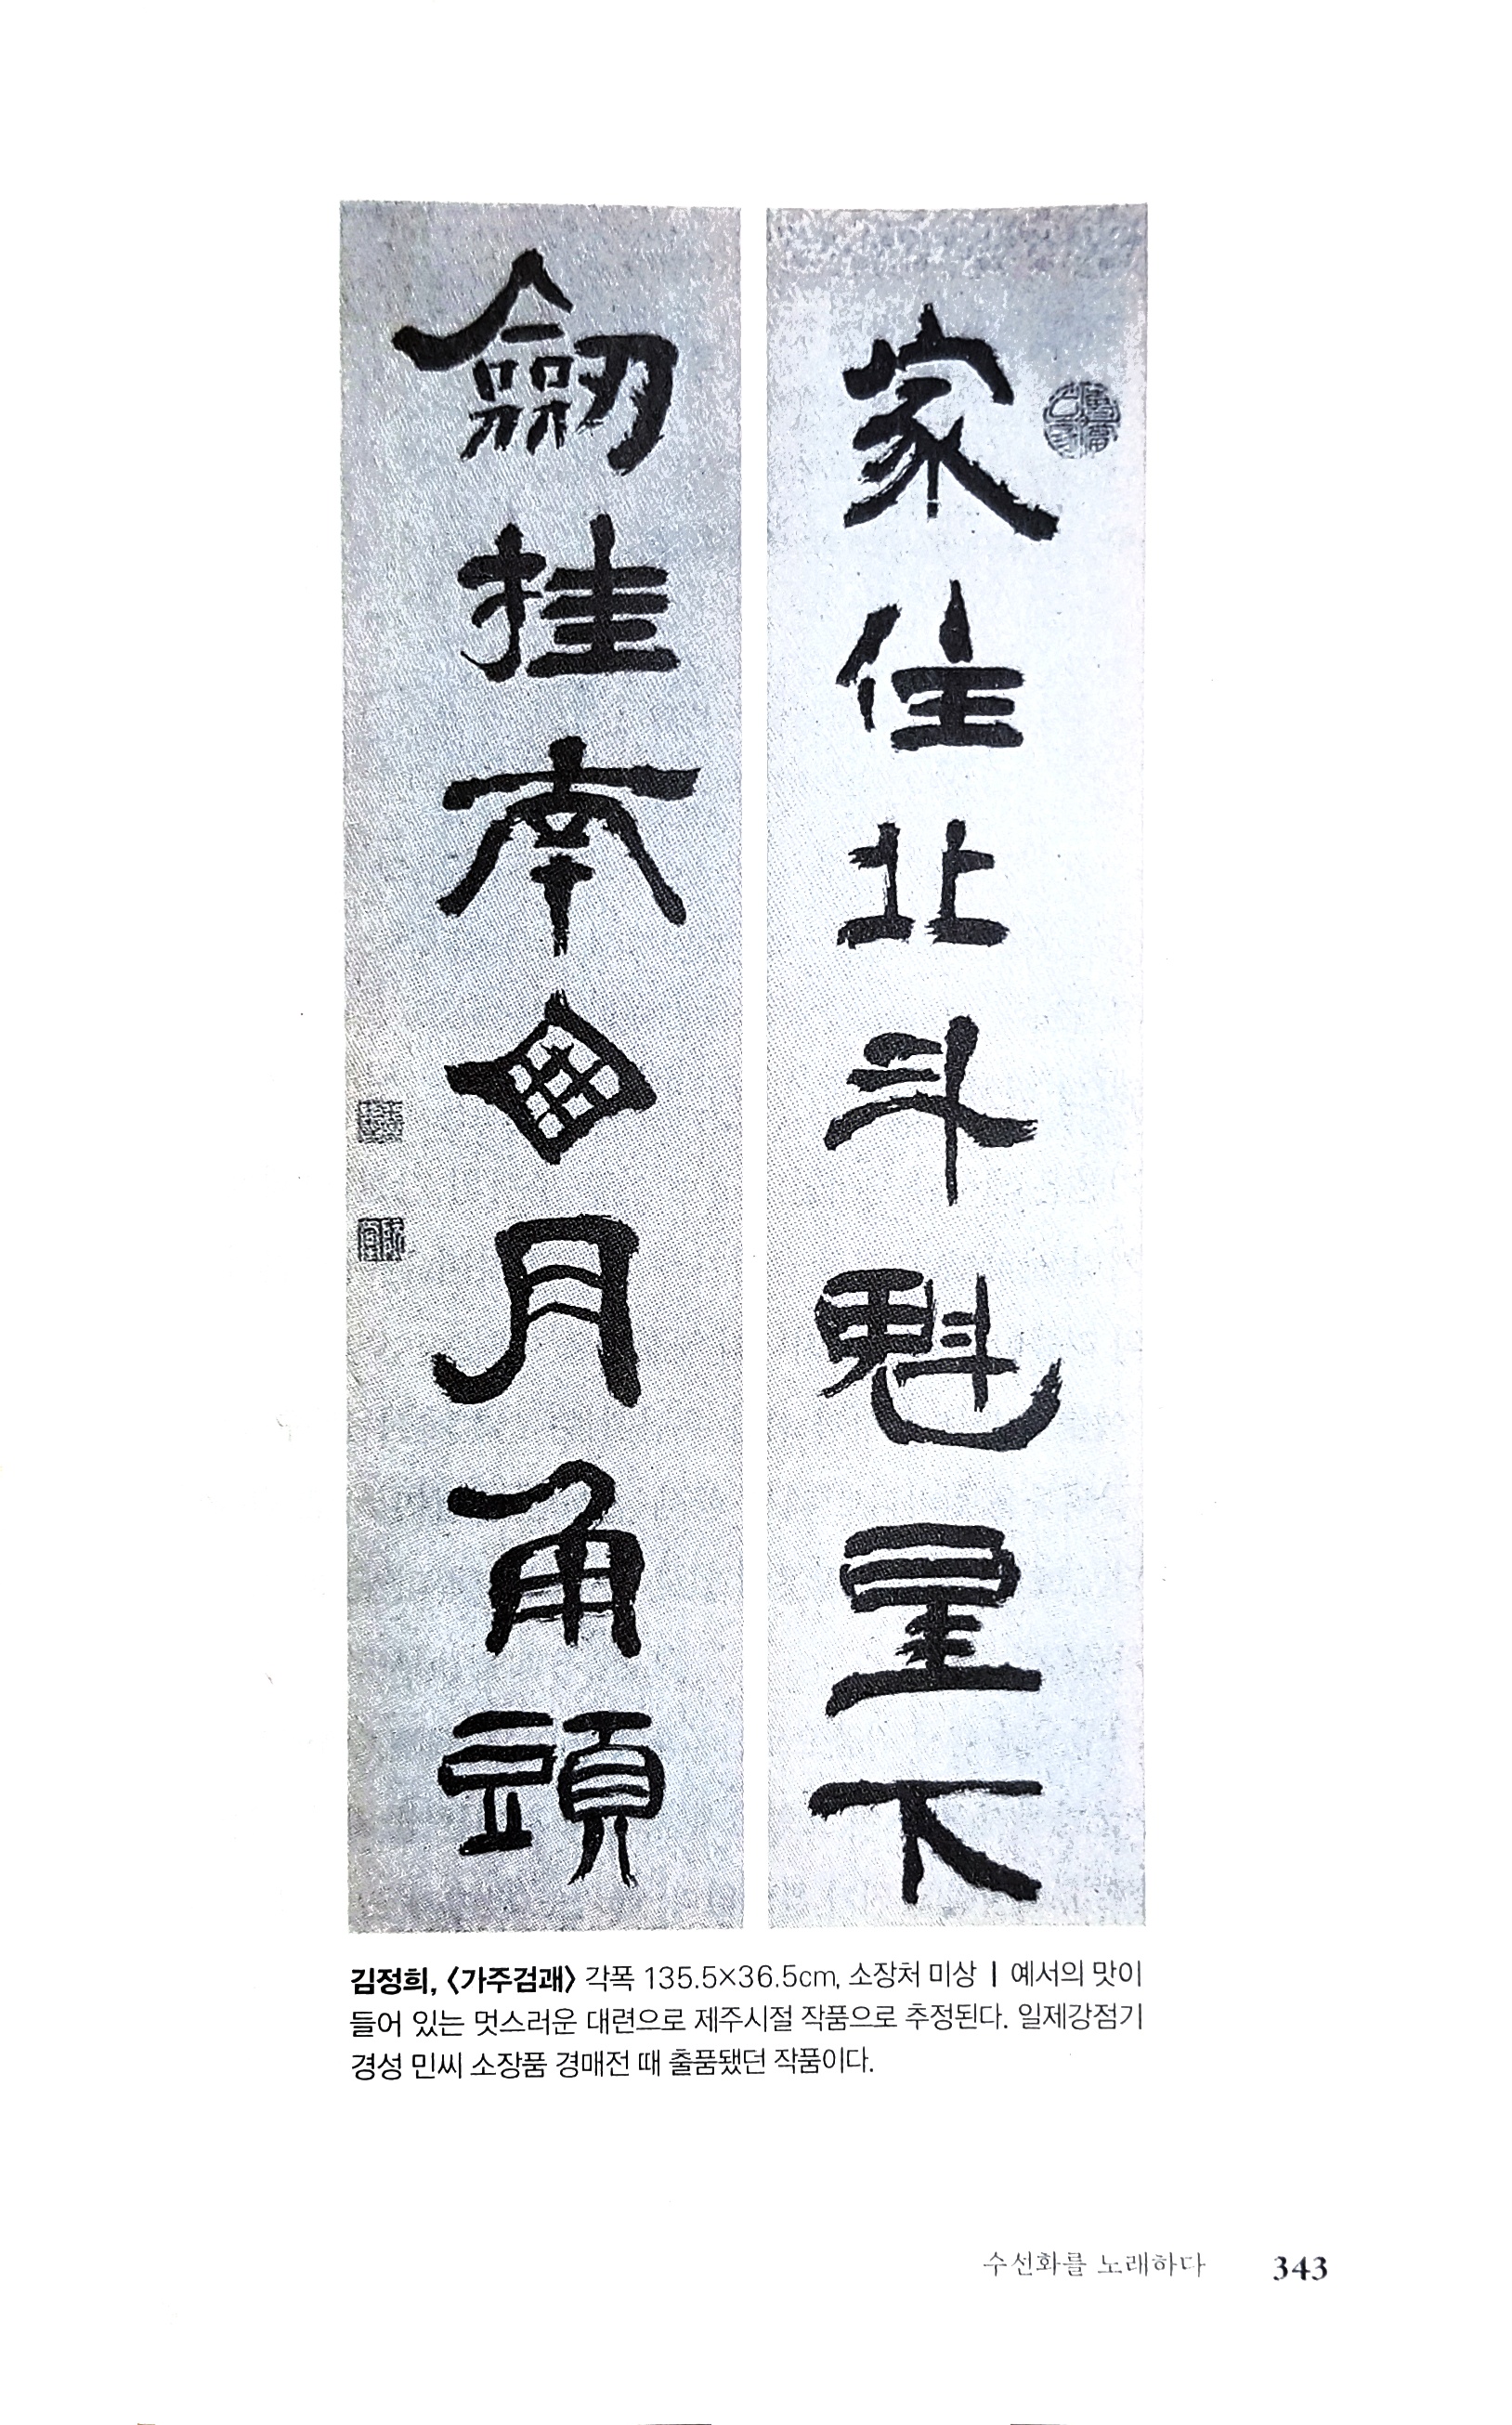 家住北斗魁星下
劒挂南囱月角頭
김정희, 〈가주검괘〉 각폭 135.5×36.5cm, 소장처 미상 | 예서의 맛이
들어 있는 멋스러운 대련으로 제주시절 작품으로 추정된다. 일제강점기
경성 민씨 소장품 경매전 때 출품됐던 작품이다.
수선화를 노래하다 343